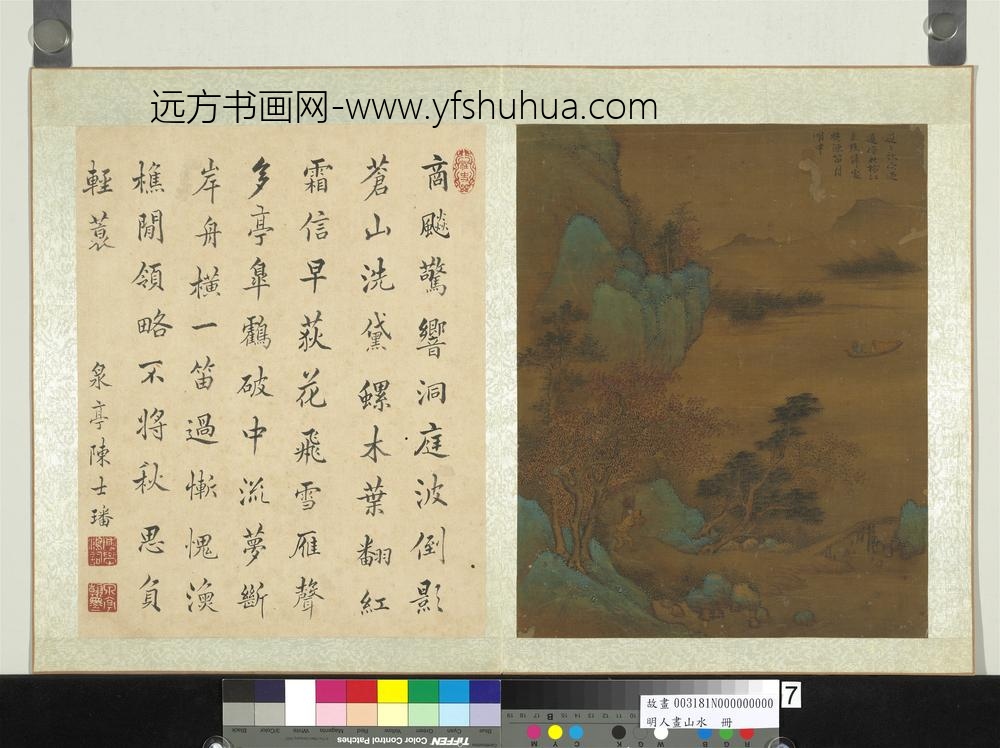 远方书画网-www.yfshuhua.com
商飈驚響洞庭波倒影
蒼山洗黛螺木葉翻紅
霜信早荻花飛雪雁聲
多亭臯鶴破中流夢斷
岸舟橫一笛過慚愧漁
樵閒領略不將秋思負
輕蓑
泉亭陳士璠
7
故畫 003181N000000000
明人畫山水 冊
Blue Cyan Green Yellow Red Magenta White 3/Color Black
TIFFEN Color Control Patches
M Y C K W B G R